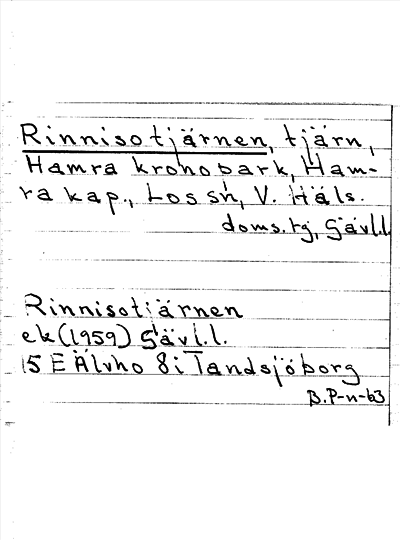 Rinnisotjärnen, tjärn,
Hamra kronopark, Ham-
ra kap., Los sn, V. Häls.
doms.tg, Gävl.l.
Rinnisotjärnen
ek (1959) Gävl.l.
15 E Älvho 8i Tandsjöborg
B.P-n-63